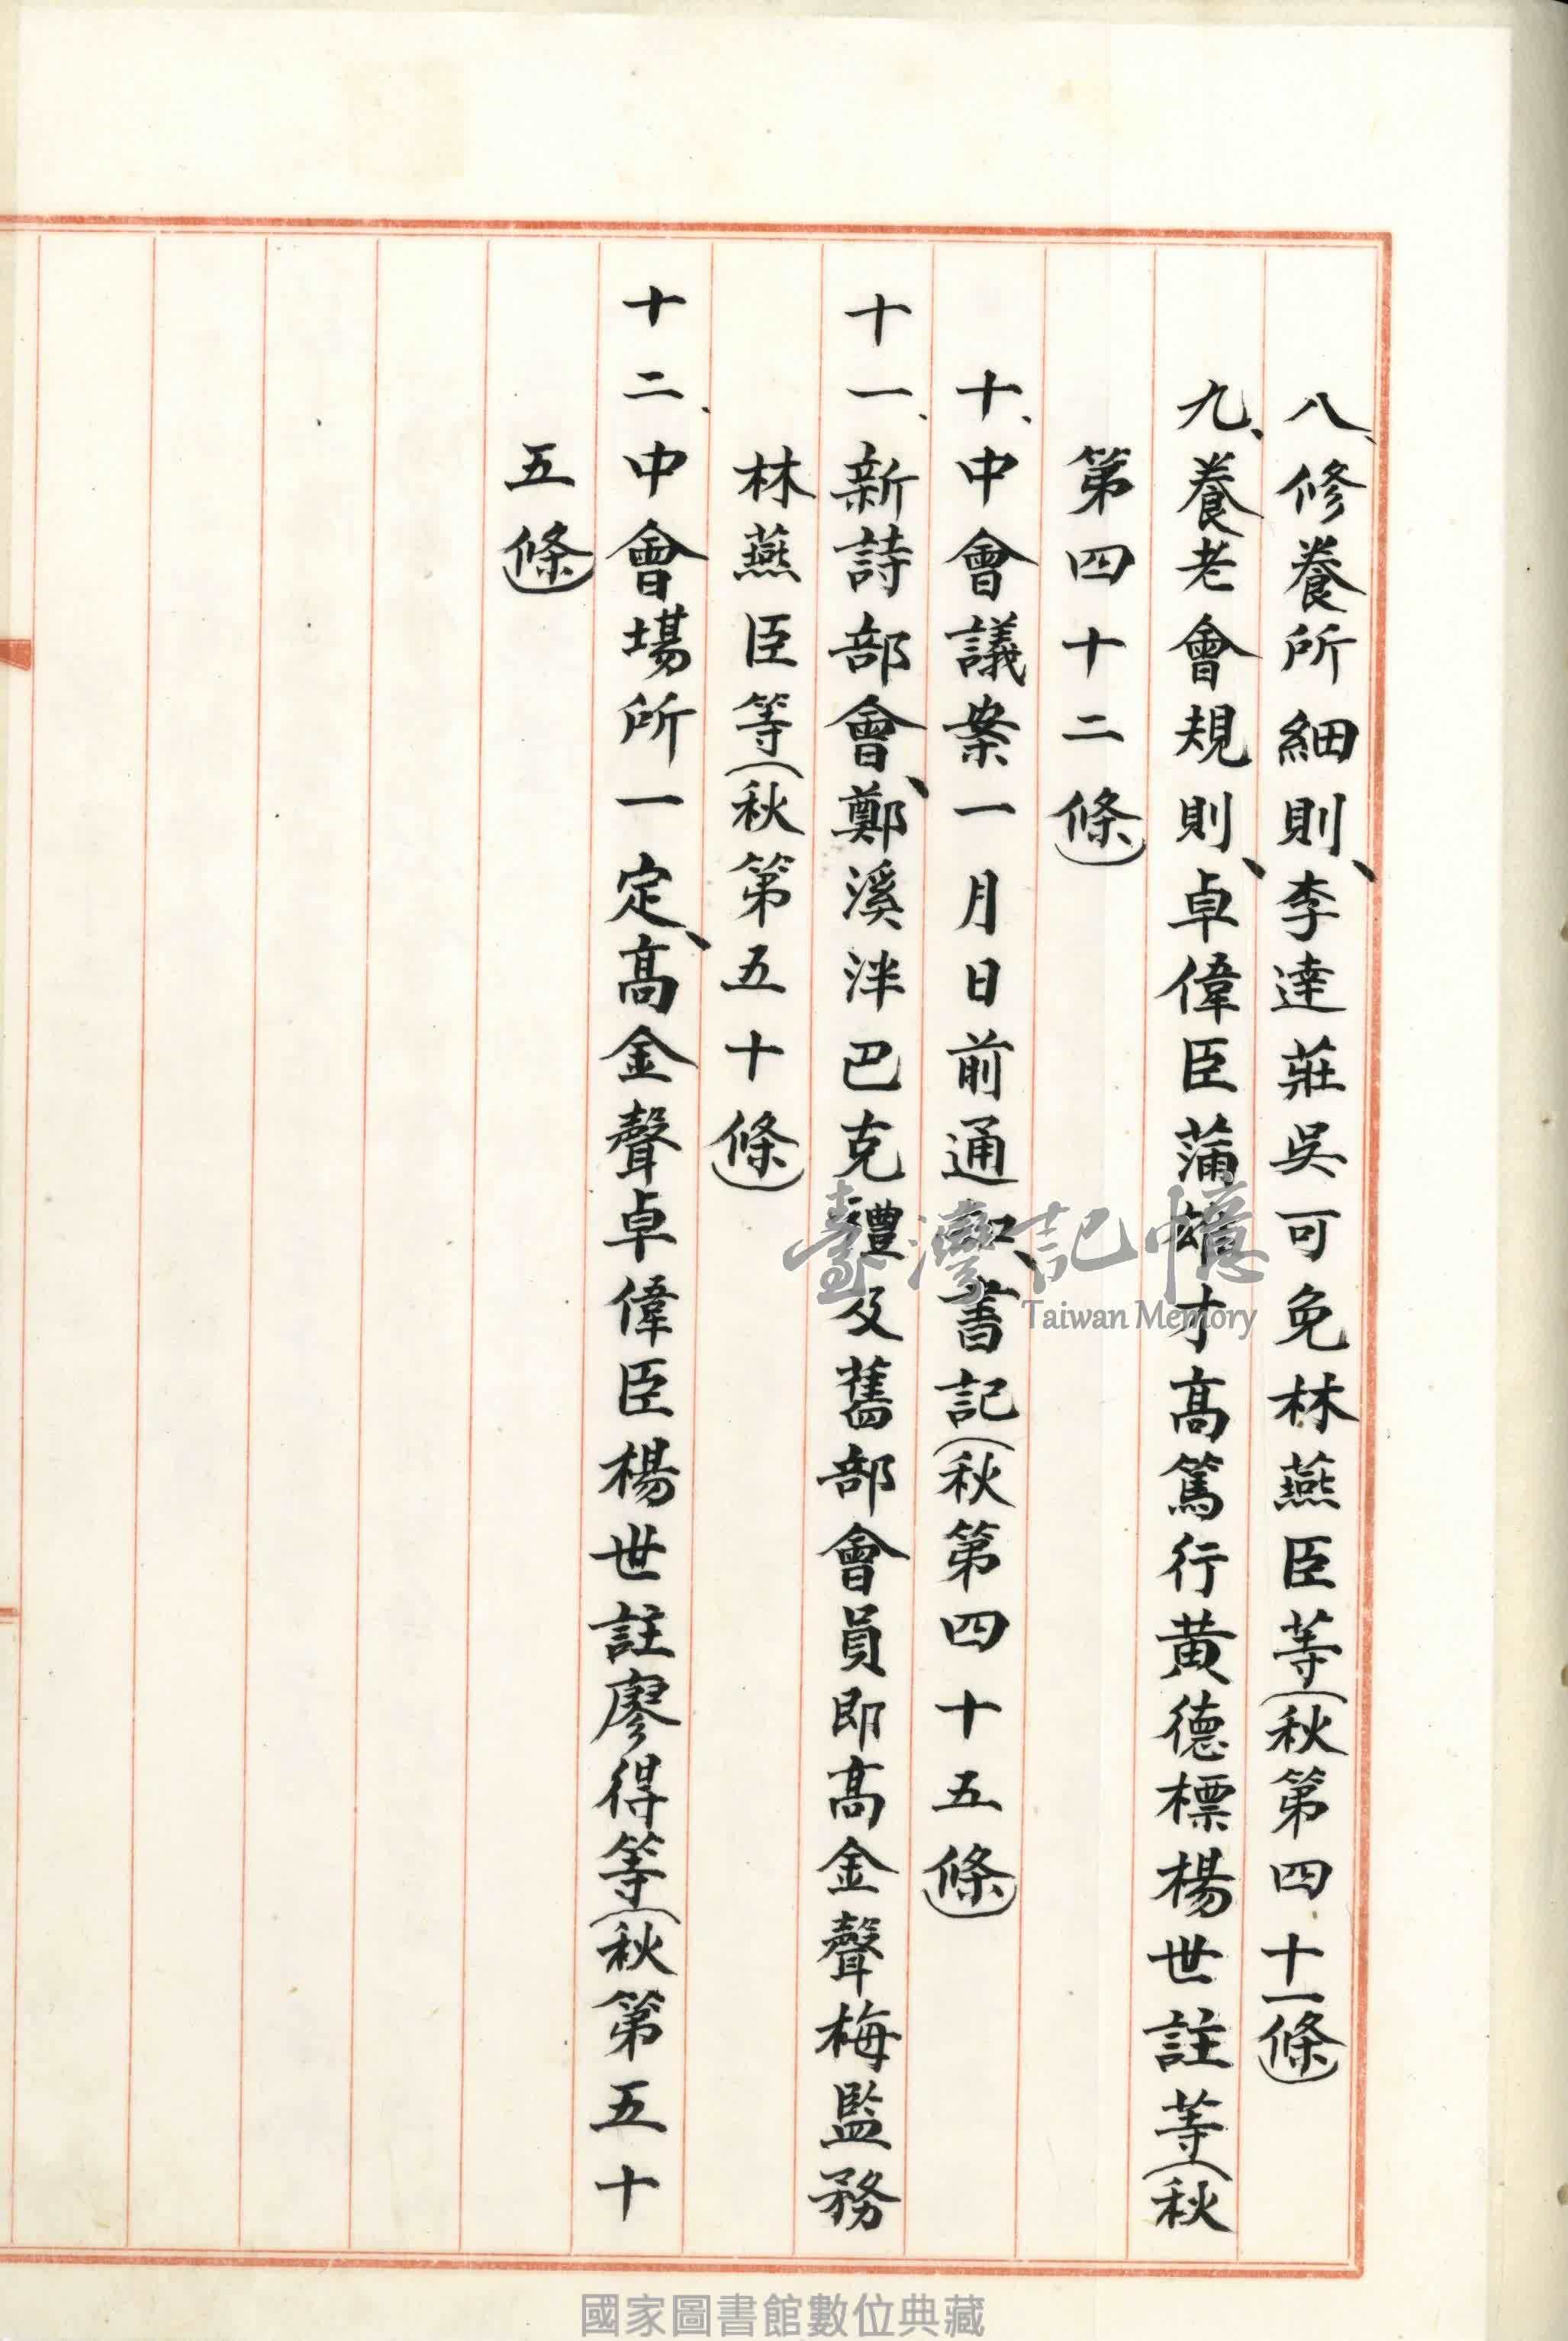 八、修養所細則、李達莊吳可免林燕臣等(秋第四十一條)
九、養老會規則、卓偉臣蒲雄才高篤行黃德標楊世註等(秋
第四十二條)
十、中會議案一月日前通知、書記(秋第四十五條)
十一、新詩部會、鄭溪泮巴克禮及舊部會員即高金聲梅監務
林燕臣等(秋第五十條)
十二、中會場所一定、高金聲卓偉臣楊世註廖得等(秋第五十
五條)
臺灣記憶
Taiwan Memory
國家圖書館數位典藏